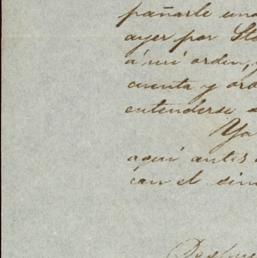 pañarle una
ayer por
á mi orden,
cuenta y
entenderse
Ya
aquí antes
can el